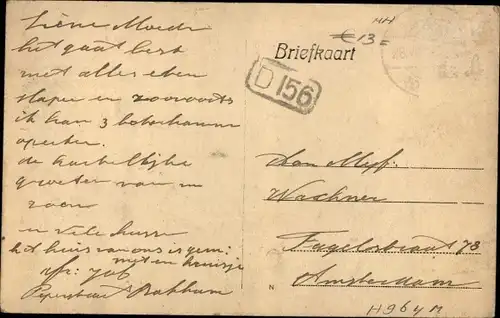 Lieve Moeder
het gaat best
met alles eten
slapen en zoovoorts
ik kan 3 boterhammen
op eeten.
de hartelijke
groeten van
en vele kussen
het huis van ons is gem:
met een kruisje
MH
€ 13 =
Briefkaart
D 156
Aan Mej:
Wachner
Fagelstraat 78
Amsterdam
N
H964M